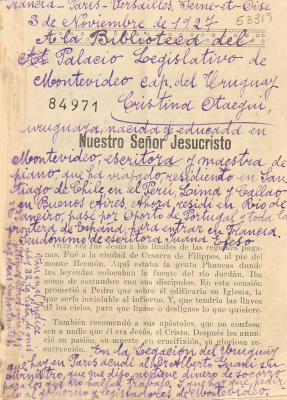 Francia - Paris - Versailles, Seine-et-Oise
3 de Noviembre de 1927
53819
A la Biblioteca del
Palacio Legislativo de
Montevideo cap. del Uruguay
84971
Cristina Otaegui,
uruguaya, nacida y educada en
Nuestro Señor Jesucristo
Montevideo, escritora y maestra de
piano, que ha viajado, residiendo en San
tiago de Chile, en el Perú, Lima y Callao
y en Buenos Aires. Ahora residí en Rio de
Janeiro, pasé por Oporto de Portugal y toda la
frontera de España, para entrar en Francia.
Seudónimo de escritora Juana
Otra vez fue Jesús a los límites de las regiones paga-
nas. Fué a la ciudad de Cesarea de Filippos, al pie del
monte Hermón. Aquí estaba la gruta Phaneas donde
las leyendas colocaban la fuente del río Jordán. Iba
como de costumbre con sus discípulos. En esta ocasión
prometió a Pedro que sobre él edificaría su Iglesia, la
que sería inviolable al infierno. Y, que tendría las llaves
de los cielos, para que ligase o desligase lo que quisiere.
También recomendó a sus apóstoles, que no confesa-
ran a nadie que él era Jesús, el Cristo. Después les anun-
ció su pasión, su muerte en crucifixión, su gloriosa re-
surrección.
En la Legación del Uruguay
que hay en Paris acudí al Dr. Alberto Guani. La
Ministro, que me dijo, no tiene dinero de socorro
para los que no hallan trabajo. Y que hay que pedir
lo al gobierno y legisladores de Montevideo.